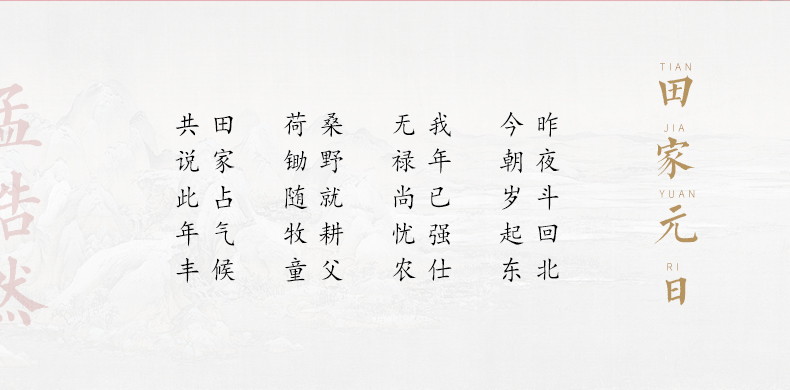 TIAN
田
JIA
家
YUAN
元
RI
日
昨夜斗回北
今朝岁起东
我年已强仕
无禄尚忧农
桑野就耕父
荷锄随牧童
田家占气候
共说此年丰
孟浩然